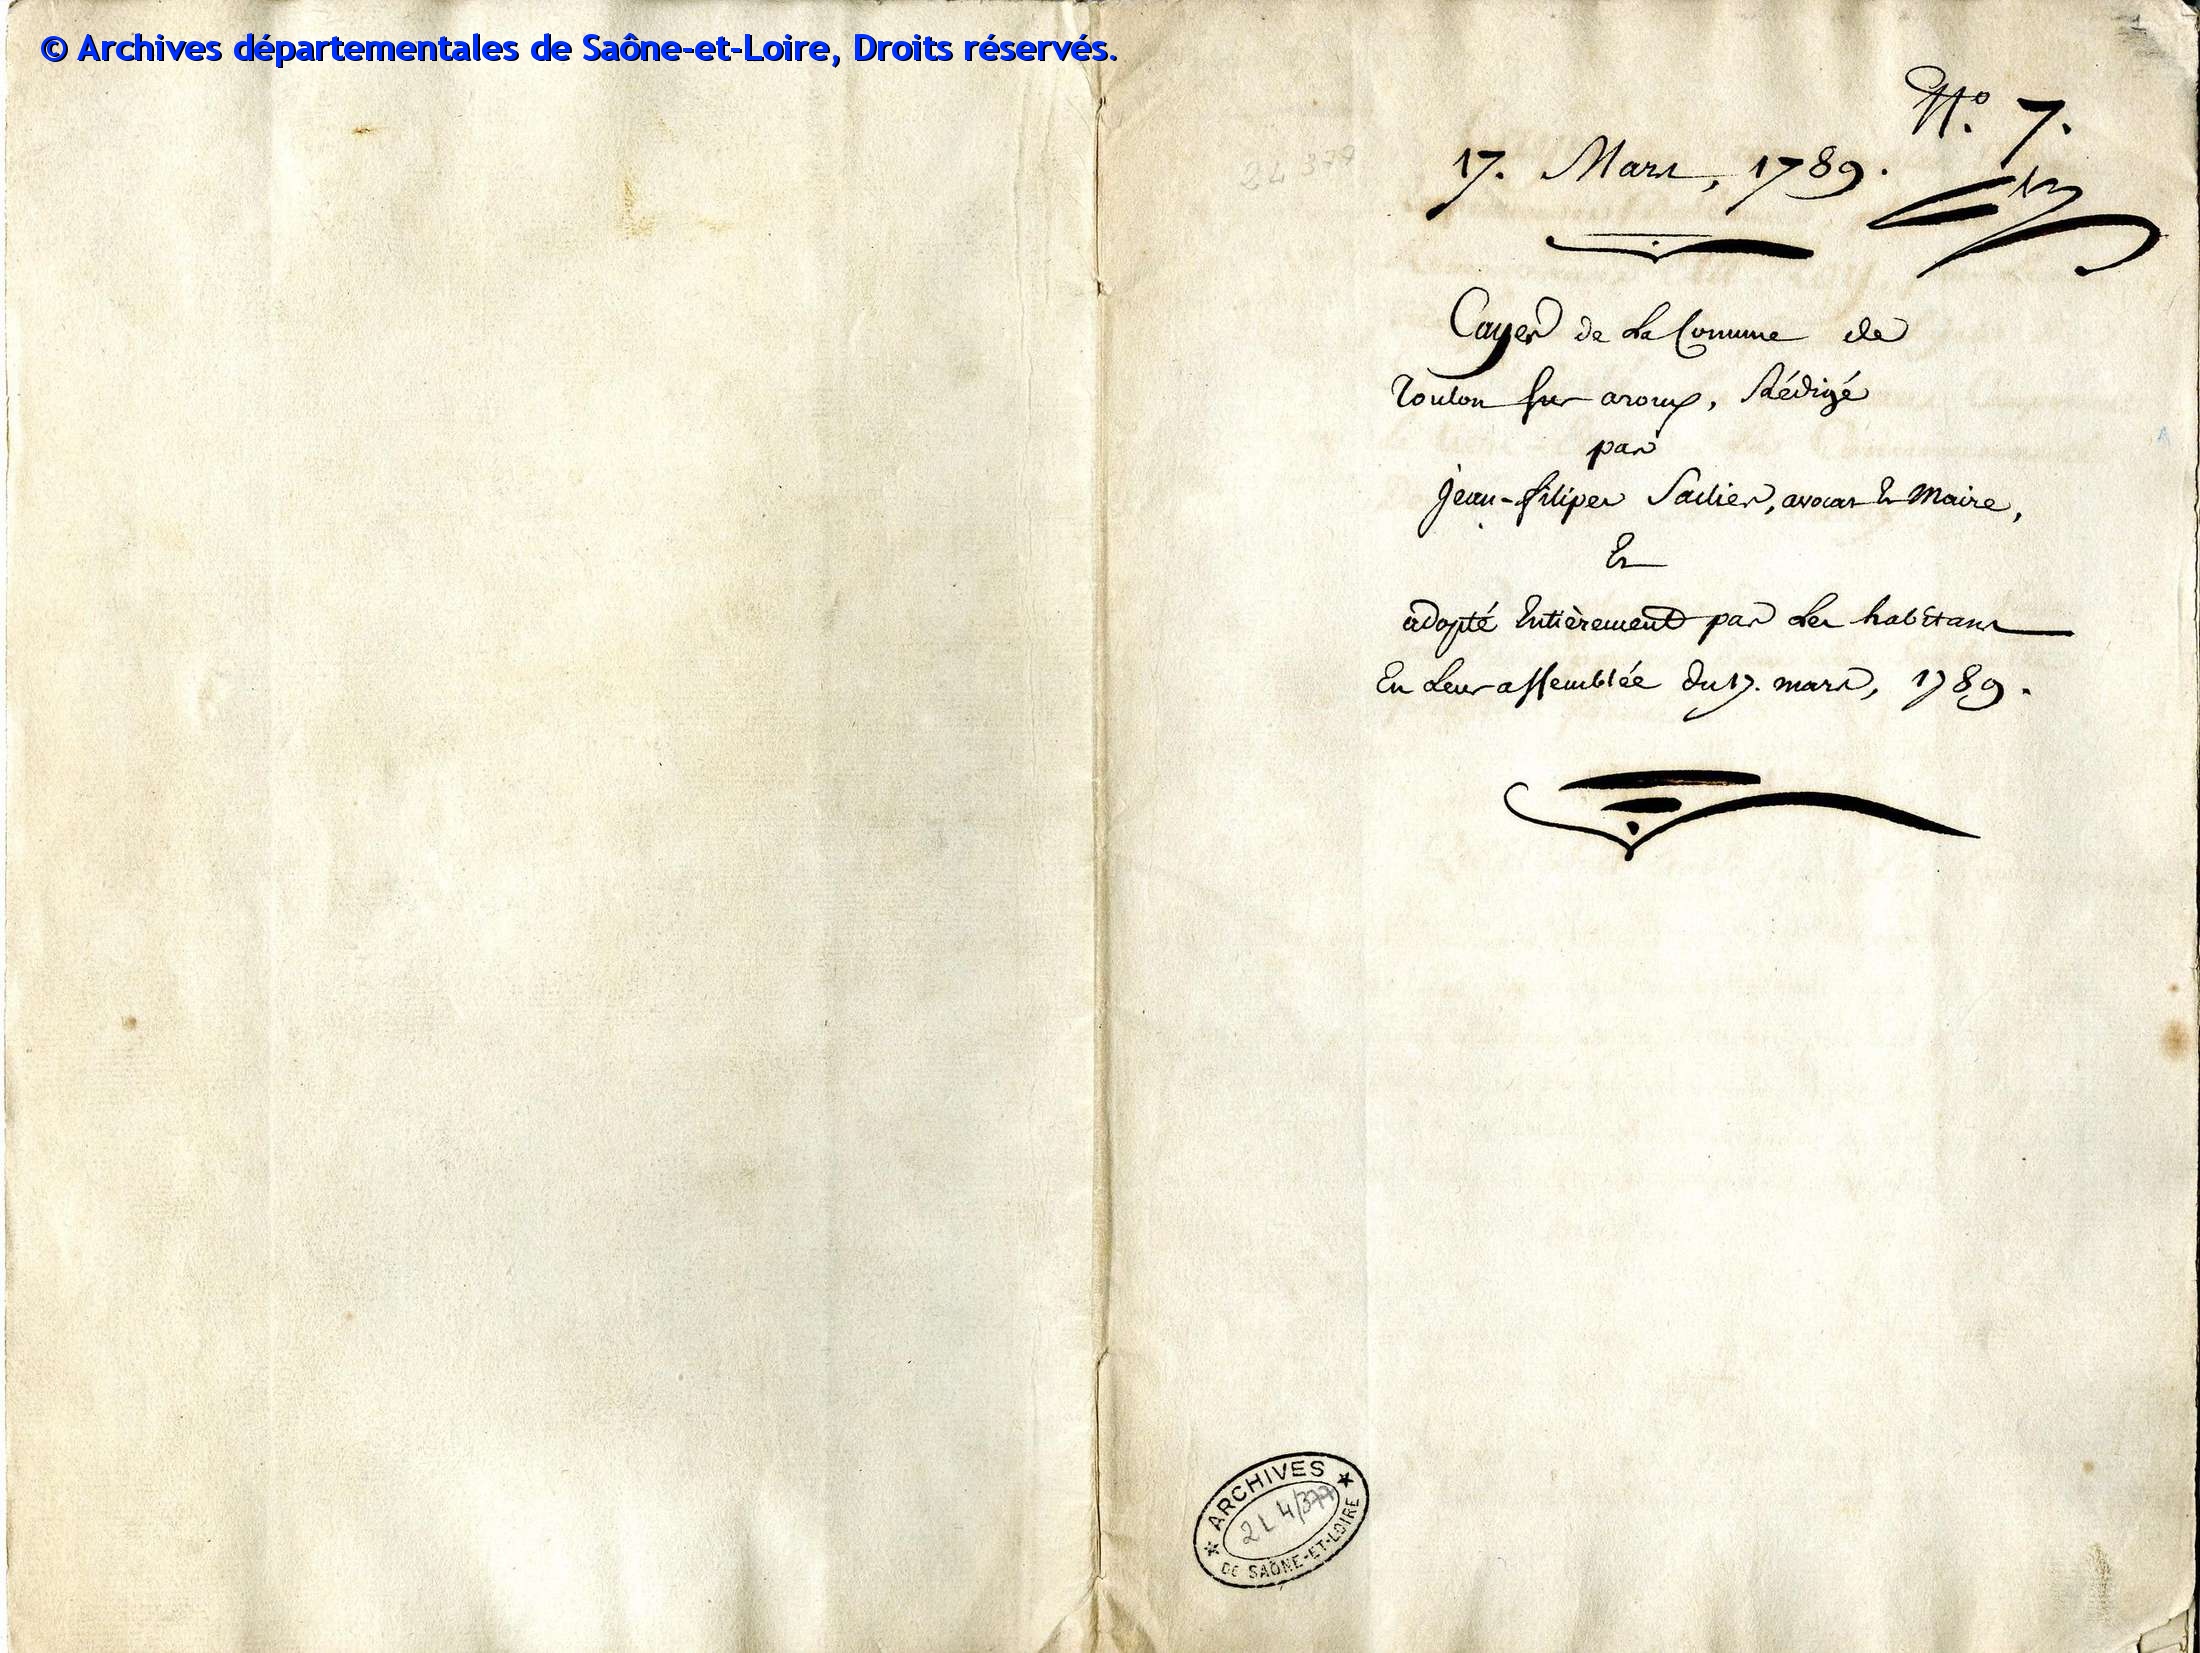 © Archives départementales de Saône-et-Loire, Droits réservés.
N.º 7.
17. Mars, 1789.
2L 377
Cayer de La Comune de
Toulon sur aroux, Rédigé
par
jean-filipes Saclier, avocat Et Maire,
Et
adopté Entièrement par Les habitans
En Leur assemblée du 17. mars, 1789.
ARCHIVES
2 L 4/377
DE SAÔNE-ET-LOIRE